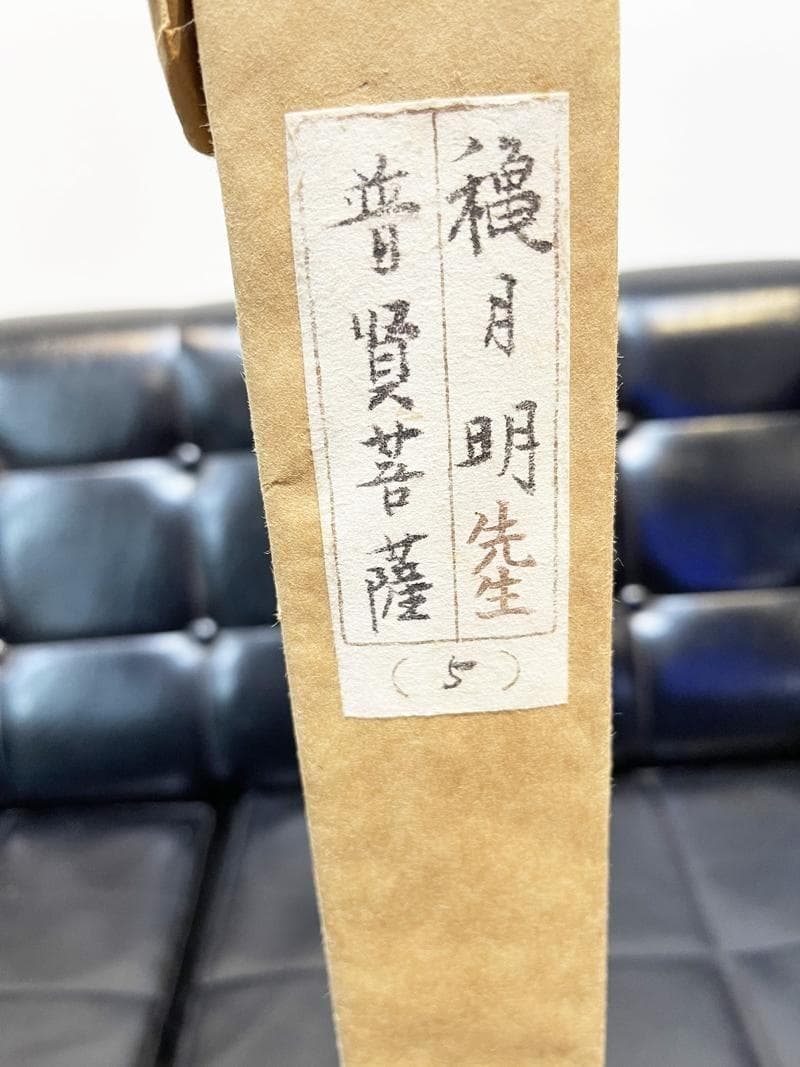 穐月明先生
普賢菩薩
(5)